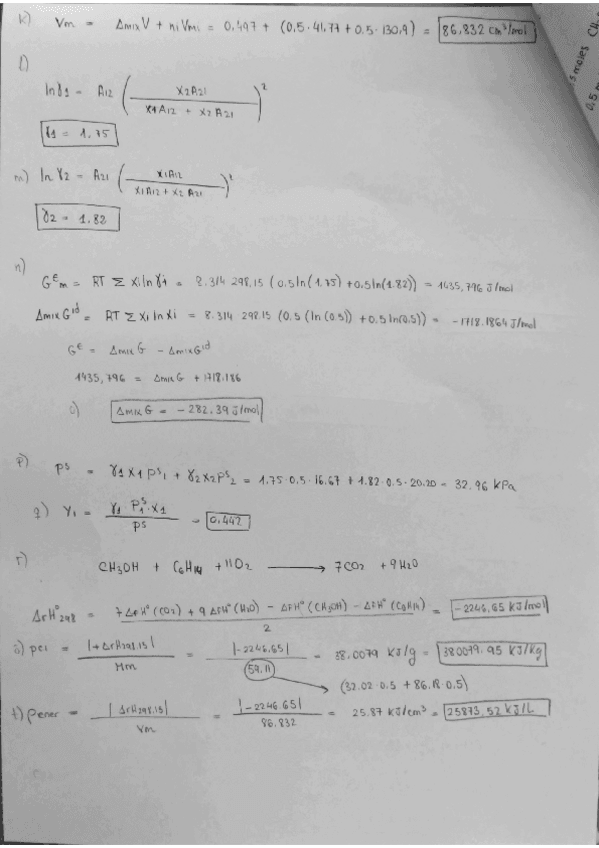 k) Vm = ΔmixV + niVmi = 0.497 + (0.5·41.77 + 0.5·130.9) = 86,832 cm³/mol
5 moles CH
0.5 m
l)
lnγ1 = A12 (X2A21 / X1A12 + X2A21)²
γ1 = 1.75
m) ln γ2 = A21 (X1A12 / X1A12 + X2A21)²
γ2 = 1.82
n)
GᴱM = RT Σ xi ln γi = 8.314 298.15 (0.5ln(1.75) + 0.5ln(1.82)) = 1435,796 J/mol
ΔmixGⁱᵈ = RT Σ Xi ln Xi = 8.314 298.15 (0.5 (ln(0.5)) + 0.5 ln(0.5)) = -1718.1864 J/mol
Gᴱ = ΔmixG - ΔmixGⁱᵈ
1435,796 = ΔmixG + 1718.186
o) ΔmixG = -282,39 J/mol
p) pˢ = γ1 X1 pˢ1 + γ2 X2 pˢ2 = 1.75·0.5·16.67 + 1.82·0.5·20.20 = 32.96 kPa
q) Y1 = γ1·Pˢ1·X1 / pˢ = 0.442
r)
CH3OH + C6H14 + 11O2 ⟶ 7CO2 + 9H2O
ΔrH°298 = 7ΔfH°(CO2) + 9ΔfH°(H2O) - ΔfH°(CH3OH) - ΔfH°(C6H14) / 2 = -2246,65 KJ/mol
s) pci = |+ΔrH298.15| / Mm = |-2246.65| / 59.11 = 38.0079 KJ/g = 380079.95 KJ/Kg
(32.02·0.5 + 86.18·0.5)
t) ρener = |ΔrH298.15| / Vm = |-2246.65| / 86.832 = 25.87 KJ/cm³ = 25873.52 KJ/L